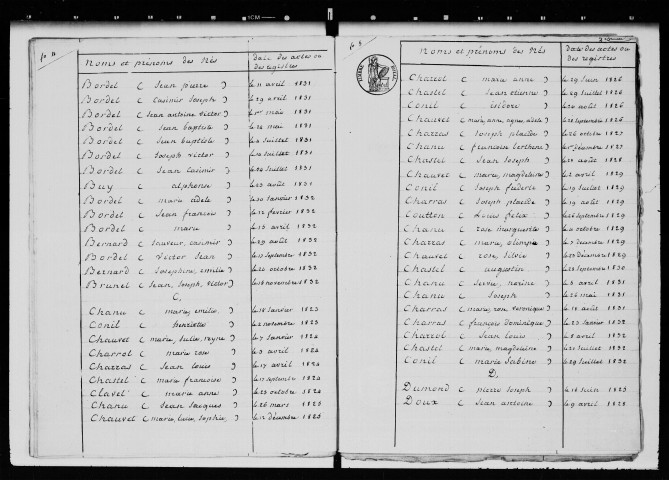 noms et prénoms des Nés
date des actes ou
des registres
Bordel ( Jean pierre ) le 11 avril 1831
Bordel ( Casimir Joseph ) le 29 avril 1831
Bordel ( Jean antoine victor ) le 1er mai 1831
Bordel ( Jean baptiste ) mai 1831
Bordel ( Jean baptiste ) juillet 1831
Bordel ( Joseph victor ) juillet 1831
Bordel ( Jean Casimir ) juillet 1831
Buy ( alphonse ) le 23 août 1831
Bordel ( marie adele ) le 30 Janvier 1832
Bordel ( Jean françois ) le 12 février 1832
Bordel ( marie ) le 15 avril 1832
Bernard ( Sauveur, casimir ) le 29 août 1832
Bordel ( Victor Jean ) septembre 1832
Bernard ( Josephine, emilie ) octobre 1832
Brunel ( Jean, Joseph, victor ) novembre 1832
C,
Chanu ( marie, emilie, ) le 18 janvier 1823
Conil ( henriette ) novembre 1823
Chauvet ( marie, Julie, reyne ) le 7 janvier 1824
Charrot ( marie rose ) avril 1824
Charras ( Jean Louis ) le 17 avril 1824
Chastel ( marie francoise ) septembre 1824
Clavel ( marie anne ) le 23 octobre 1824
Chanu ( Jean Jacques ) le 26 mars 1825
Chauvet ( marie, luce, Sophie, ) le 12 décembre 1825
noms et prénoms des Nés
date des actes ou
des registres
Charrot ( marie anne ) le 29 Juin 1826
Chastel ( Jean etienne ) le 29 Juillet 1826
Conil ( isidore ) août 1826
Chauvet ( marie, anne, reyne, adele ) septembre 1826
Charras ( Joseph placide ) le 26 octobre 1827
Chanu ( francoise berthine ) décembre 1827
Chastel ( Jean Joseph ) août 1828
Chauvet ( marie, magdeleine ) avril 1829
Conil ( Joseph frederic ) le 19 Juillet 1829
Charras ( Joseph placide ) le 19 août 1829
Coutton ( Louis felix ) septembre 1829
Chanu ( rose marguerite ) octobre 1829
Charras ( marie, olimpe ) décembre 1829
Chauvet ( rose, Silvie ) décembre 1829
Chastel ( augustin ) septembre 1830
Chanu ( avril 1831
Chanu ( Joseph ) le 26 mai 1831
Charras ( marie, rose, veronique ) le 18 août 1831
Charras ( françois dominique ) le 23 Janvier 1832
Charrot ( Jean Louis ) avril 1832
Chastel ( marie, magdeleine ) Juillet 1832
Conil ( marie Sabine ) le 29 Juillet 1832
D.
Dumond ( pierre Joseph ) Juin 1825
Doux ( Jean antoine ) le 9 avril 1828